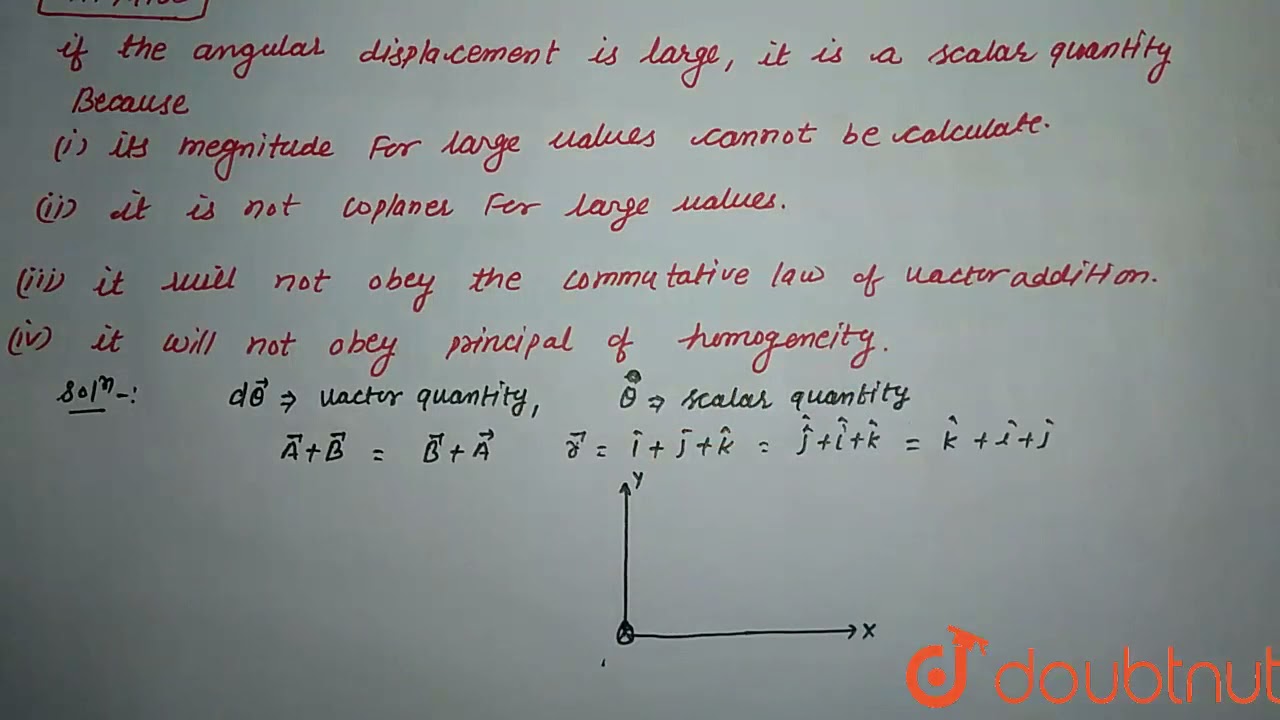 if the angular displacement is large, it is a scalar quantity
Because
(i) its megnitude For large values cannot be calculate.
(ii) it is not coplaner For large values.
(iii) it will not obey the commutative law of vactor addition.
(iv) it will not obey principal of homogeneity.
Solⁿ-: dθ⃗ ⇒ vactor quantity, θ ⇒ scalar quantity
A⃗+B⃗ = B⃗+A⃗ r⃗ = î + j̄ + k̂ = ĵ+î+k̂ = k̂ + î + ĵ
Y
X
doubtnut